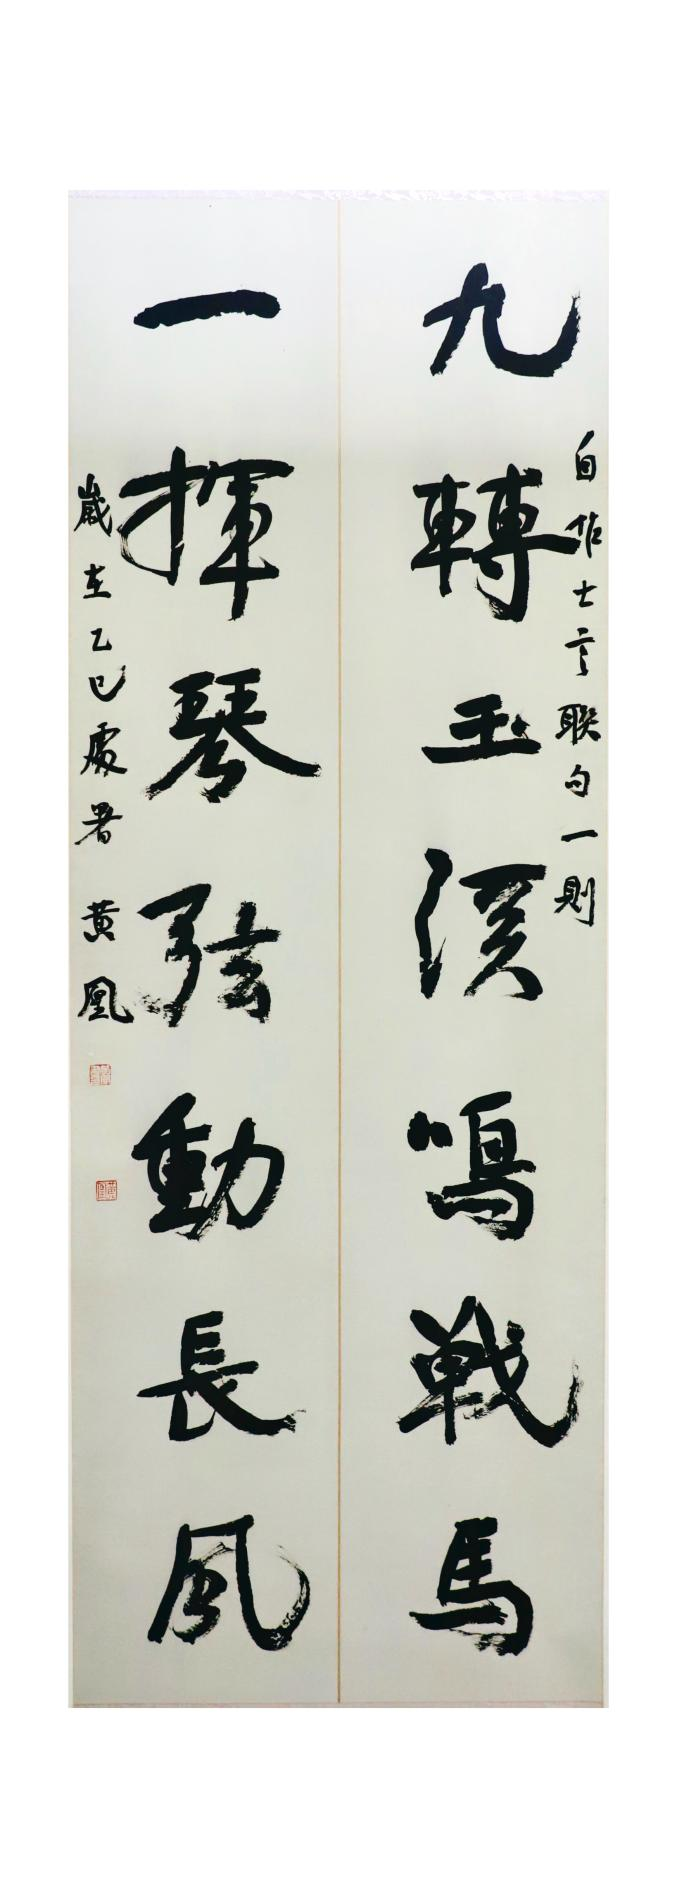 自作七言聯句一則
九轉玉溪鳴戰馬
一揮琴弦動長風
歲在乙巳處暑 黃凰